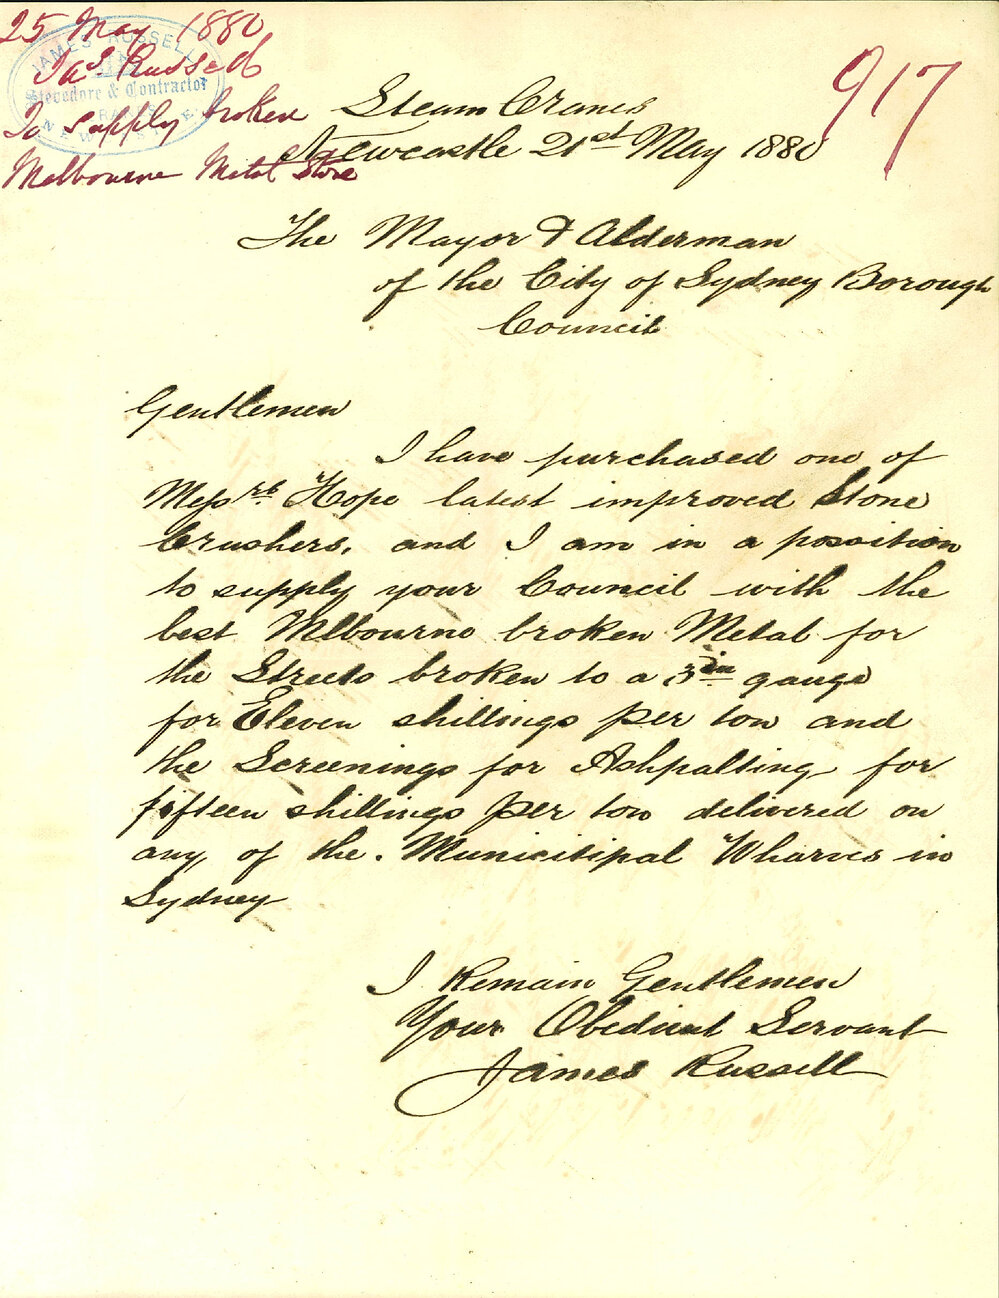 25 May 1880
Jas Russell
To supply broken
Melbourne Metal Stone
JAMES RUSSELL
Stevedore & Contractor
NEWCASTLE
917
Steam Cranes
Newcastle 21st May 1880
The Mayor & Alderman
of the City of Sydney Borough
Council
Gentlemen
I have purchased one of
Messrs Hope latest improved Stone
Crushers, and I am in a possition
to supply your Council with the
best Mlbourne broken Metal for
the Streets broken to a 3in gauge
for Eleven shillings per ton and
the Screenings for Ashpalting for
fifteen shillings per ton delivered on
any of the Municitipal Wharves in
Sydney
I Remain Gentlemen
Your Obedient Servant
James Russell